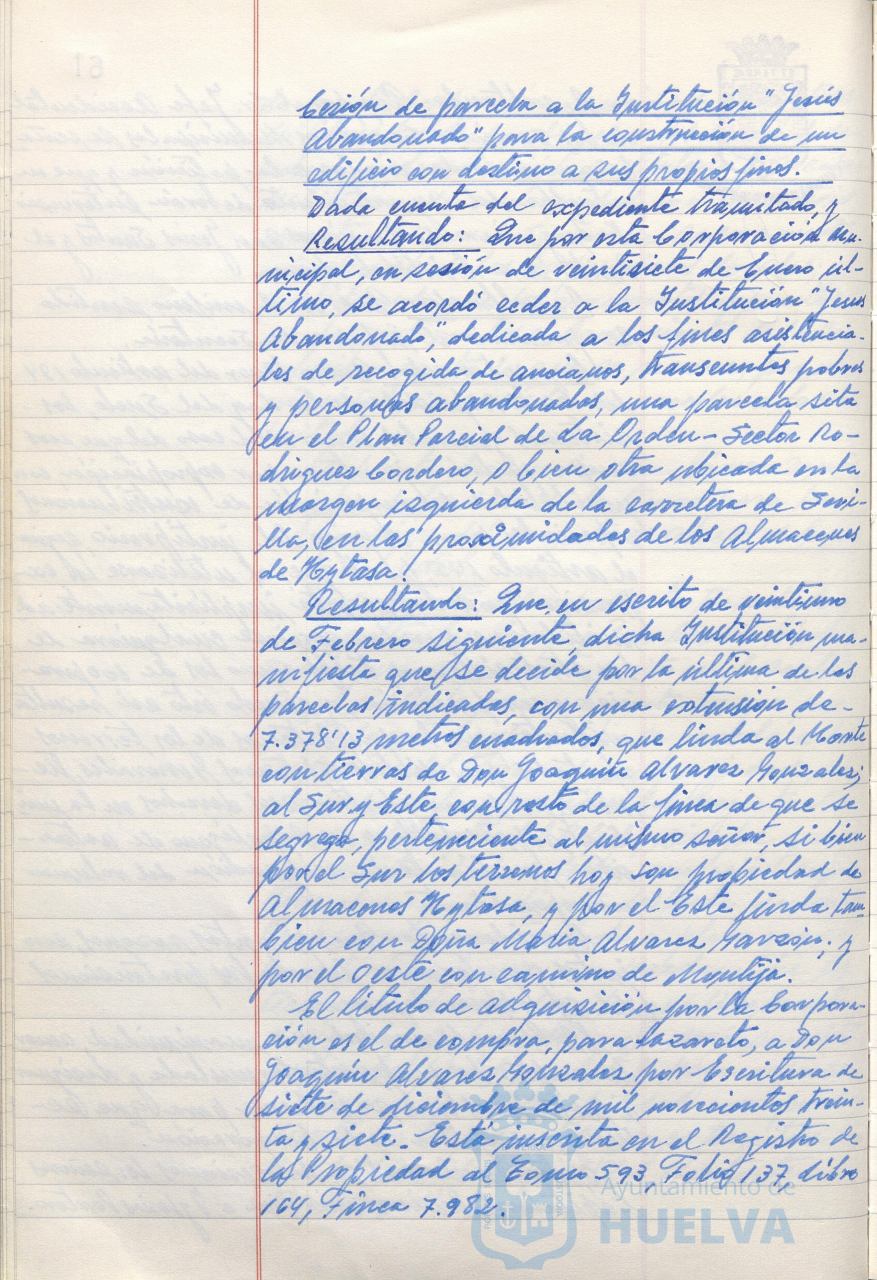 Cesión de parcela a la Institución "Jesús
Abandonado" para la construcción de un
edificio con destino a sus propios fines.
Dada cuenta del expediente tramitado, y
Resultando: Que por esta Corporación mu-
nicipal, en sesión de veintisiete de Enero úl-
timo, se acordó ceder a la Institución "Jesus
Abandonado", dedicada a los fines asistencia-
les de recogida de ancianos, transeuntes pobres
y personas abandonadas, una parcela sita
en el Plan Parcial de La Orden-Sector Ro-
driguez Cordero, o bien otra ubicada en la
margen izquierda de la carretera de Sevi-
lla, en las proximidades de los Almacenes
de Hytasa.
Resultando: Que, en escrito de veintiuno
de Febrero siguiente, dicha Institución ma-
nifiesta que se decide por la última de las
parcelas indicadas, con una extensión de-
7.378'13 metros cuadrados, que linda al Norte
con tierras de Don Joaquín Alvarez Gonzalez;
al Sur y Este, con resto de la finca de que se
segrega, perteneciente al mismo señor, si bien
por el Sur los terrenos hoy son propiedad de
Almacenes Hytasa, y por el Este linda tam-
bien con Doña Maria Alvarez Garzón; y
por el Oeste con camino de Montija.
El título de adquisición por la Corpora-
ción es el de compra, para lazareto, a Don
Joaquín Alvarez Gonzalez por Escritura de
siete de diciembre de mil novecientos trein-
ta y siete. Está inscrita en el Registro de
la Propiedad al Tomo 593 Folio 137 libro
164, Finca 7.982.
Ayuntamiento de
HUELVA